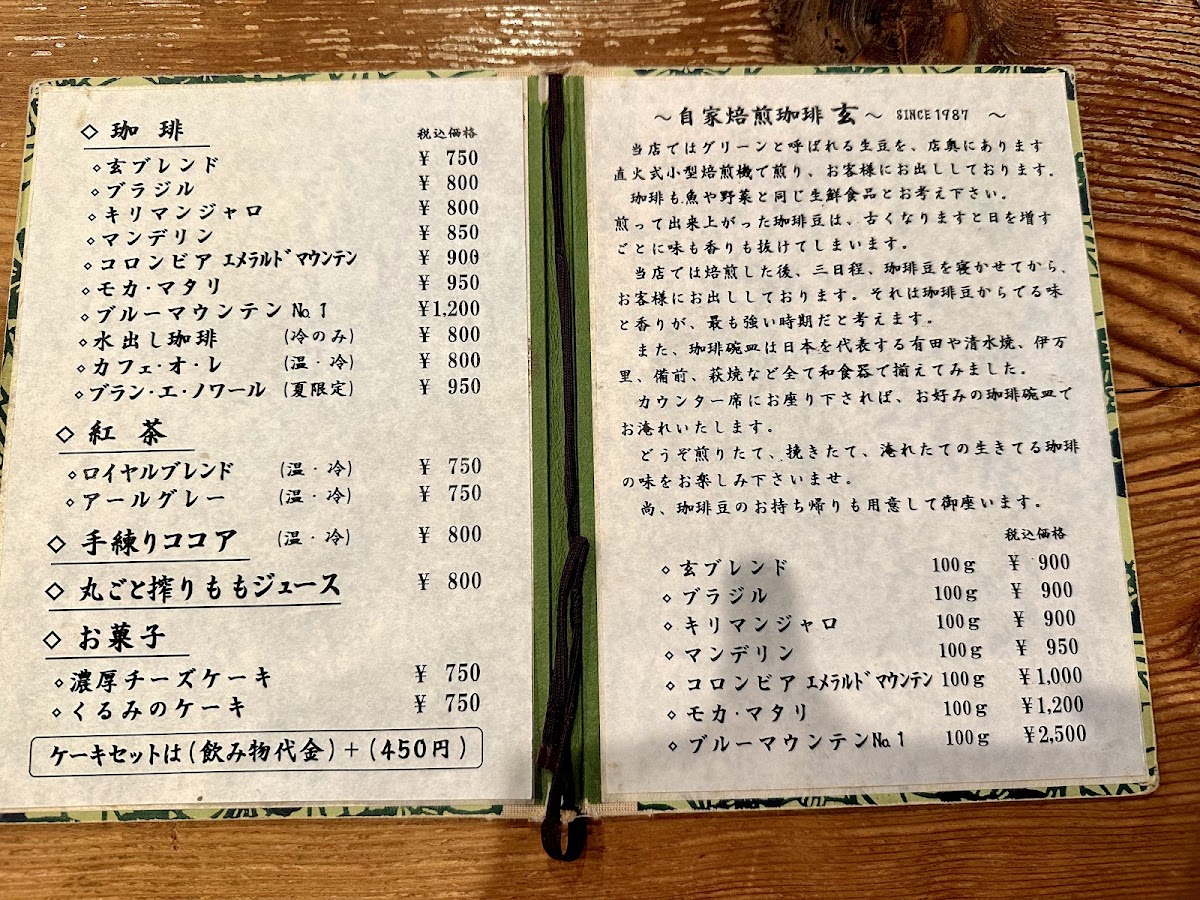 ◇ 珈 琲 税込価格
◇玄ブレンド ¥ 750
◇ブラジル ¥ 800
◇キリマンジャロ ¥ 800
◇マンデリン ¥ 850
◇コロンビア エメラルドマウンテン ¥ 900
◇モカ・マタリ ¥ 950
◇ブルーマウンテン№1 ¥1,200
◇水出し珈琲 (冷のみ) ¥ 800
◇カフェ・オ・レ (温・冷) ¥ 800
◇ブラン・エ・ノワール (夏限定) ¥ 950
◇ 紅 茶
◇ロイヤルブレンド (温・冷) ¥ 750
◇アールグレー (温・冷) ¥ 750
◇ 手練りココア (温・冷) ¥ 800
◇ 丸ごと搾りももジュース ¥ 800
◇ お菓子
◇濃厚チーズケーキ ¥ 750
◇くるみのケーキ ¥ 750
ケーキセットは(飲み物代金)+(450円)
～自家焙煎珈琲 玄～ SINCE1987 ～
当店ではグリーンと呼ばれる生豆を、店奥にあります
直火式小型焙煎機で煎り、お客様にお出ししております。
珈琲も魚や野菜と同じ生鮮食品とお考え下さい。
煎って出来上がった珈琲豆は、古くなりますと日を増す
ごとに味も香りも抜けてしまいます。
当店では焙煎した後、三日程、珈琲豆を寝かせてから、
お客様にお出ししております。それは珈琲豆からでる味
と香りが、最も強い時期だと考えます。
また、珈琲碗皿は日本を代表する有田や清水焼、伊万
里、備前、萩焼など全て和食器で揃えてみました。
カウンター席にお座り下されば、お好みの珈琲碗皿で
お淹れいたします。
どうぞ煎りたて、挽きたて、淹れたての生きてる珈琲
の味をお楽しみ下さいませ。
尚、珈琲豆のお持ち帰りも用意して御座います。
税込価格
◇玄ブレンド 100g ¥ 900
◇ブラジル 100g ¥ 900
◇キリマンジャロ 100g ¥ 900
◇マンデリン 100g ¥ 950
◇コロンビア エメラルドマウンテン 100g ¥1,000
◇モカ・マタリ 100g ¥1,200
◇ブルーマウンテン№1 100g ¥2,500